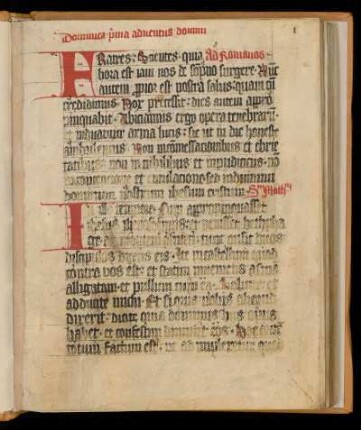 Dominica prima adventus domini
1
Fratres. Scientes quia Ad Romanos
hora est iam nos de sompno surgere. Nunc
autem propior est nostra salus quam cum
credidimus. Nox precessit. dies autem appro
pinquabit. Abiciamus ergo opera tenebrarum.
et induamur arma lucis. sic ut in die honeste
ambulemus. Non in comessacionibus et ebrie
tatibus. non in cubilibus et impudiciciis. no
contencione et emulacione. sed induimini
dominum nostrum ihesum cristum. Sm Mathm
In illo tempore. Cum appropinquasset
ihesus iherosolimis. et venisset bethpha
ge ad montem oliveti. tunc misit duos
discipulos dicens eis. Ite in castellum quod
contra vos est. et statim invenietis asinam
alligatam. et pullum cum ea. Solvite et
adducite michi. Et si quis vobis aliquid
dixerit. dicite quia dominus hiis opus
habet. et confestim dimittet eos. Hoc autem
totum factum est. ut adimpleretur quod